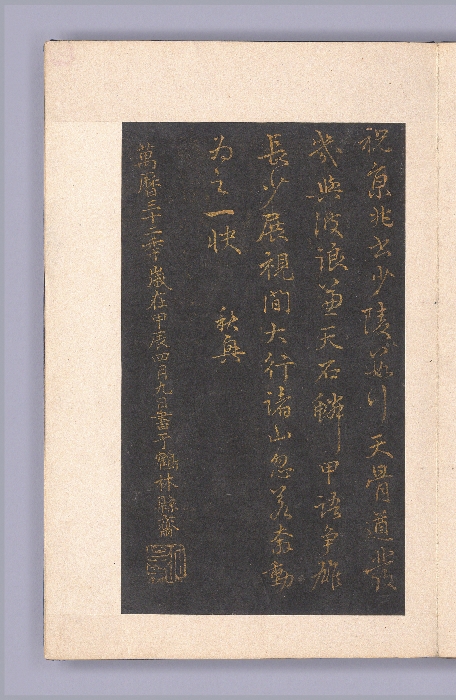 祝京兆書少陵行天骨遒發
幾與波浪兼天石鱗甲語爭雄
長少展視間大行諸山忽若奔動
為之一快
秋興
萬曆三十二年歲在甲辰四月九日書于鶴林縣齋